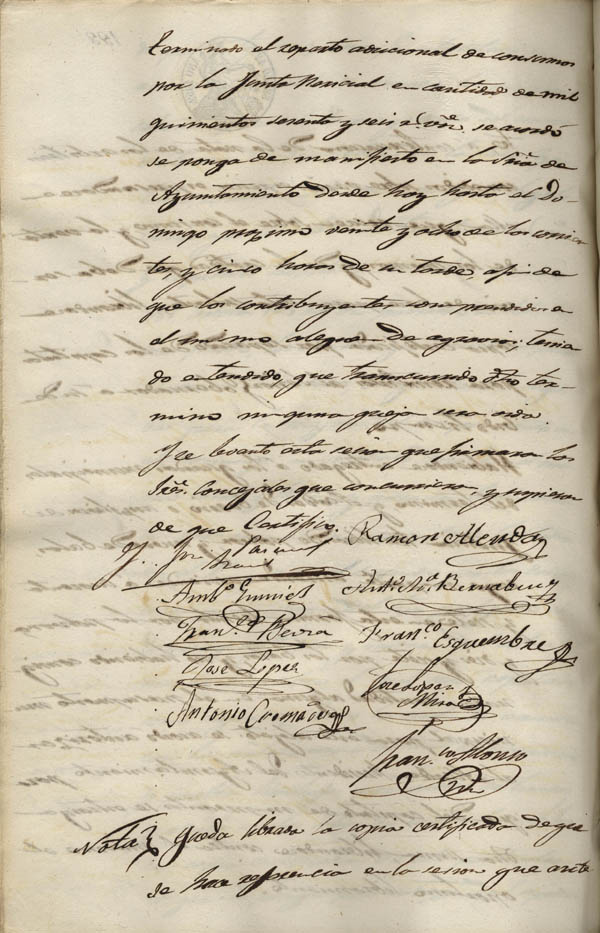 terminado el reparto adicional de consumos
por la Junta Pericial en cantidad de mil
quinientos sesenta y seis r.s von. se acordó
se ponga de manifiesto en la Sria de
Ayuntamiento desde hoy hasta el Do-
mingo proximo veinte y ocho de los corrien
tes, y cinco horas de su tarde, a fin de
que los contribuyentes comprendidos en
el mismo aleguen de agravios; tenien
do entendido, que transcurrido dho ter-
mino ninguna queja sera oida.
Y se levanto esta sesion que firmaran los
Sres. Concejales que concurrieron, y supieron
de que Certifico.
Ramon Alenda
Pascual
Antº Mª Bernabeu
Franco Esquembre
José Lopez
Jose Lopez
Miro
Antonio
Franco Alonso
Nota. Queda librada la copia certificada de que
se hace referencia en la sesion que ante